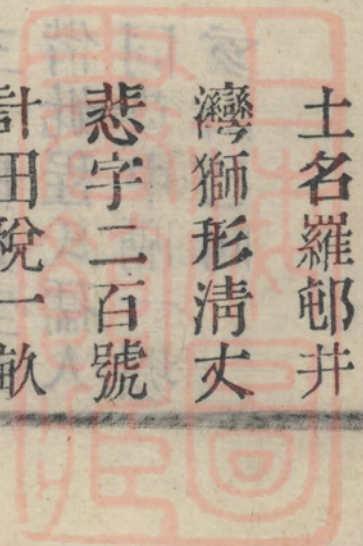 土名羅邨井
灣獅形淸丈
悲字二百號
計田稅一畝